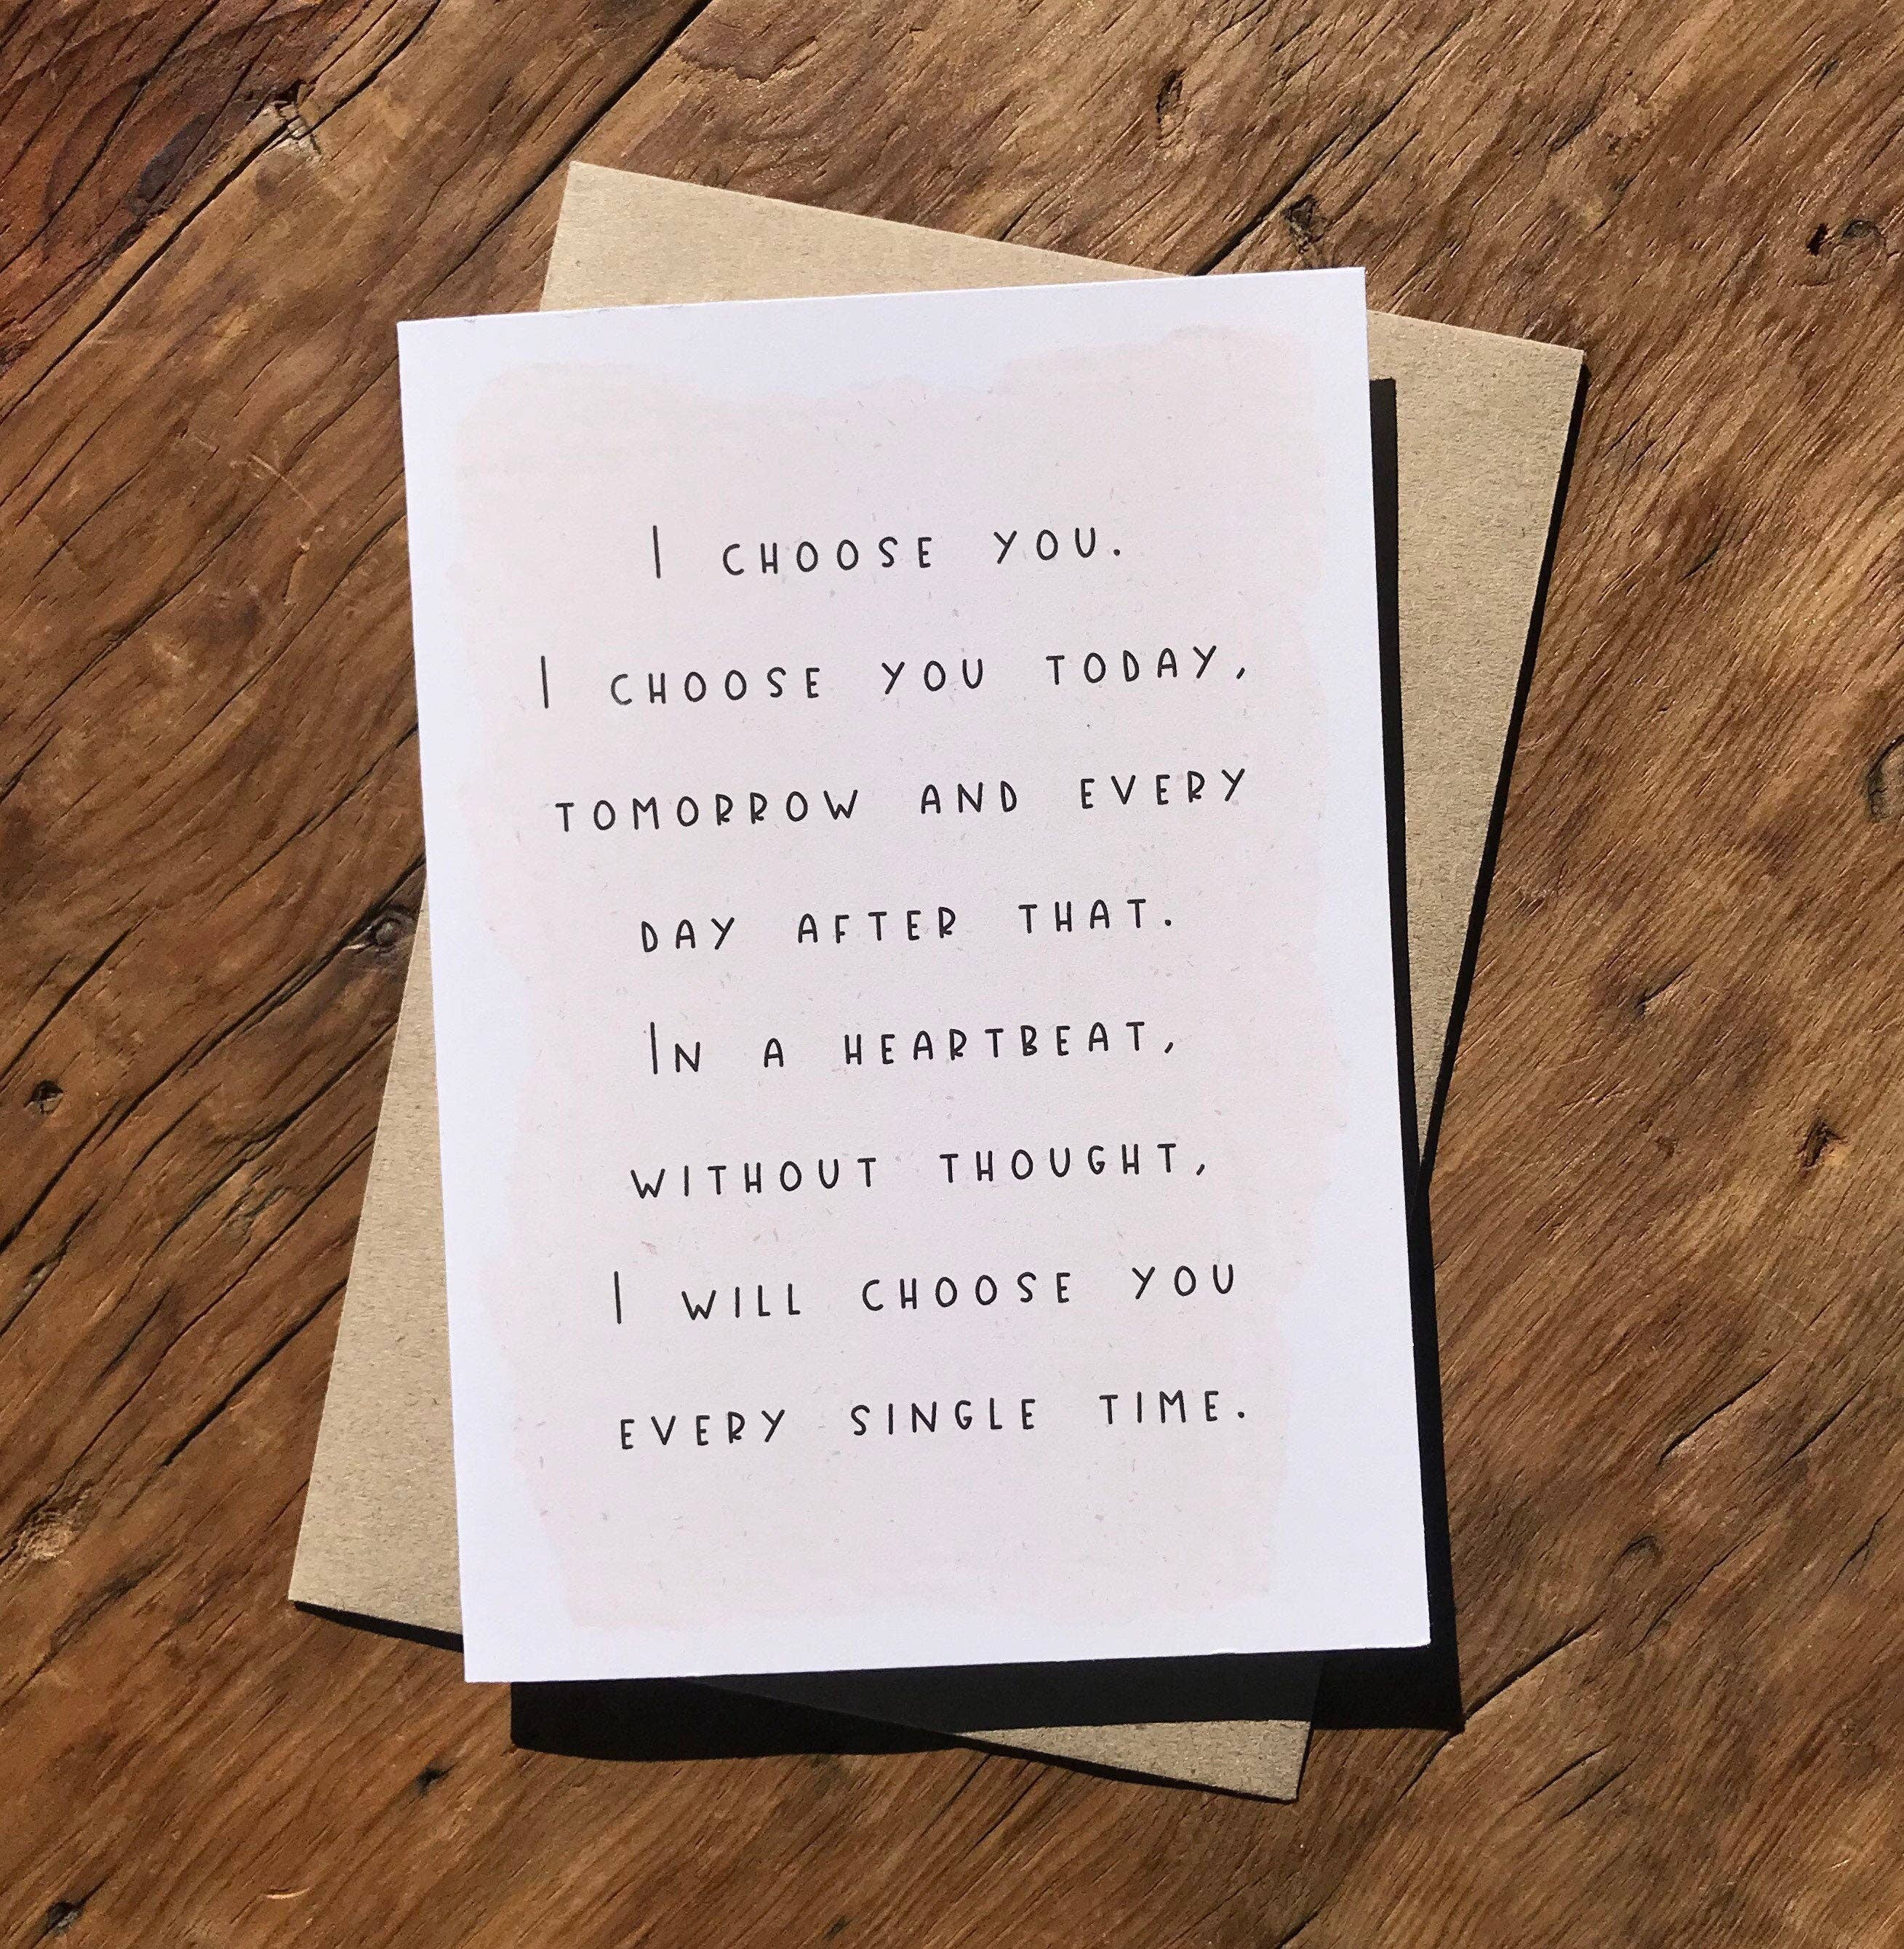 I CHOOSE YOU.
I CHOOSE YOU TODAY,
TOMORROW AND EVERY
DAY AFTER THAT.
IN A HEARTBEAT,
WITHOUT THOUGHT,
I WILL CHOOSE YOU
EVERY SINGLE TIME.